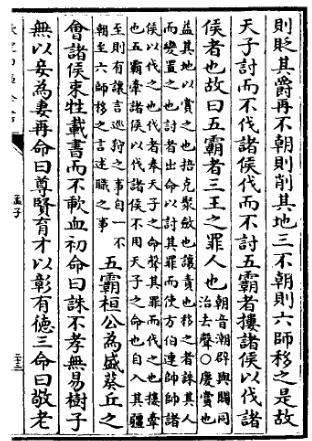 則貶其爵再不朝則削其地三不朝則六師移之是故
天子討而不伐諸侯伐而不討五霸者摟諸侯以伐諸
侯者也故曰五霸者三王之罪人也
朝音潮辟與闢同
治去聲○慶賞也
益其地以賞之也掊克聚斂也讓責也移之者誅其人
而變置之也討者出命以討其罪而使方伯連帥帥諸
侯以伐之也伐者奉天子之命聲其罪而伐之也摟牽
也五霸牽諸侯以伐諸侯不用天子之命也自入其疆
至則有讓言巡狩之事自一不
朝至六師移之言述職之事
五霸桓公為盛葵丘之
會諸侯束牲載書而不歃血初命曰誅不孝無易樹子
無以妾為妻再命曰尊賢育才以彰有德三命曰敬老
孟子